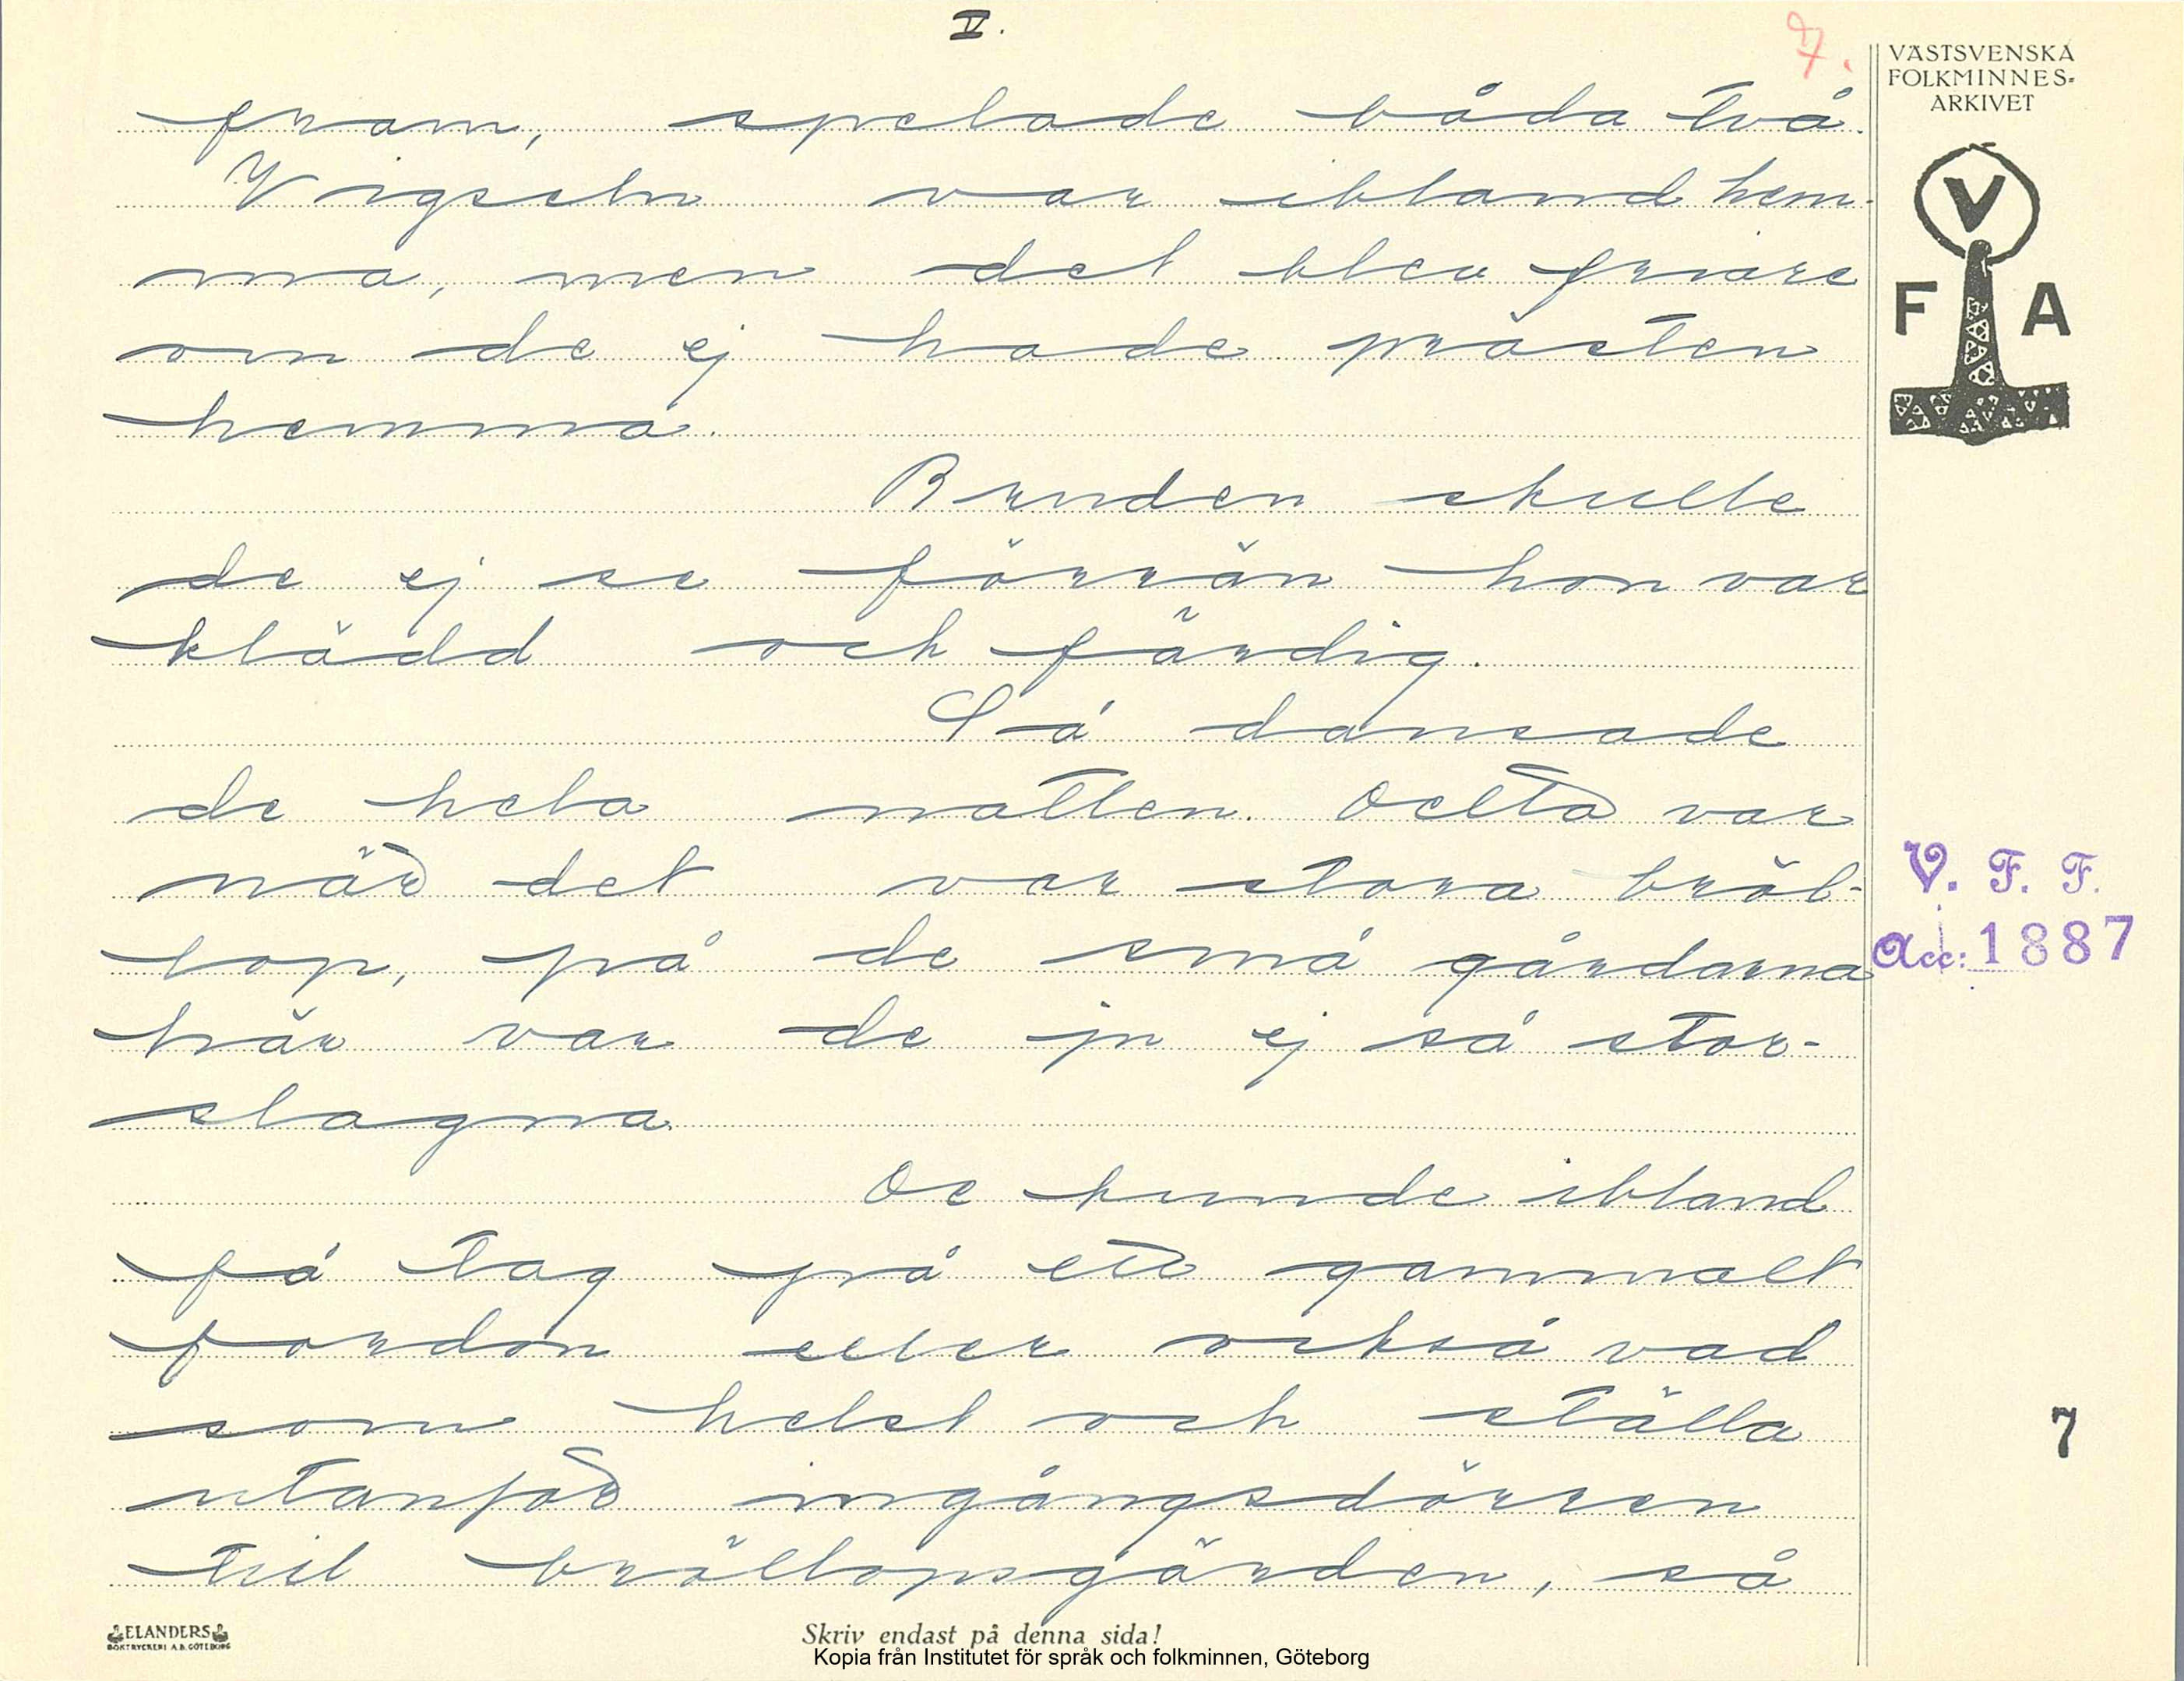 V.
7.
VÄSTSVENSKA
FOLKMINNES-
ARKIVET
V
F A
fram, spelade båda två.
Vigseln var ibland hem-
ma, men det blev friare
om de ej hade prästen
hemma.
Bruden skulle
de ej se förrän hon var
klädd och färdig.
Så dansade
de hela natten. Detta var
när det var stora bröl-
lop, på de små gårdarna
här var de ju ej så stor-
slagna.
De kunde ibland
få tag på ett gammalt
fordon eller också vad
som helst och ställa
utanför ingångsdörren
till bröllopsgården, så
V. F. F.
Acc: 1887
7
ELANDERS
BOKTRYCKERI A.B. GÖTEBORG
Skriv endast på denna sida!
Kopia från Institutet för språk och folkminnen, Göteborg